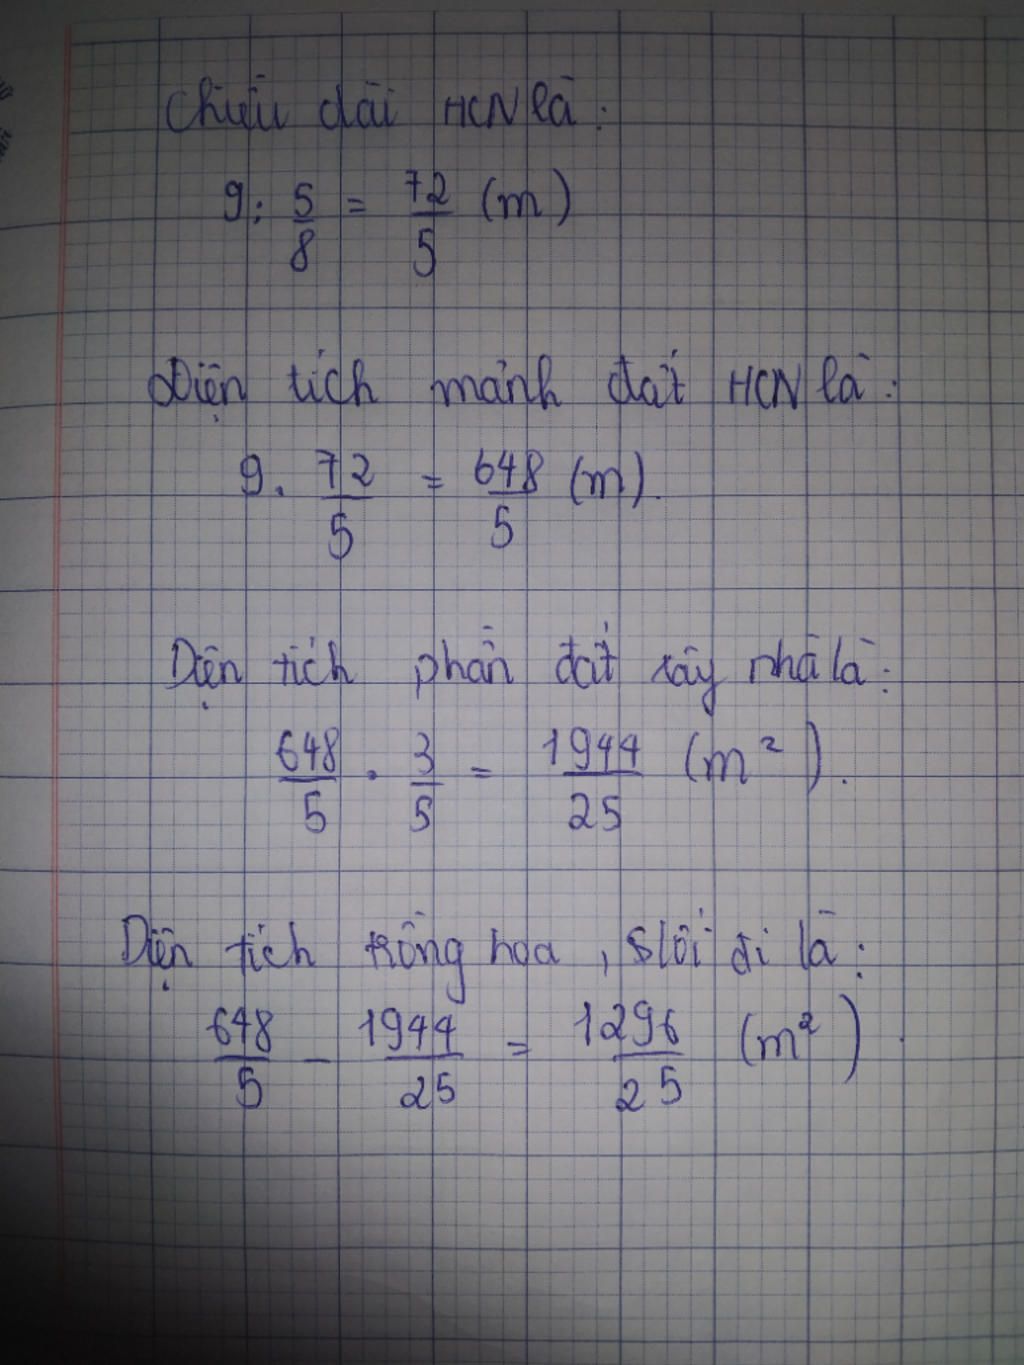 Chiều dài HCN là:
9 : 5/8 = 72/5 (m)
Diện tích mảnh đất HCN là:
9 . 72/5 = 648/5 (m).
Diện tích phần đất xây nhà là:
648/5 . 3/5 = 1944/25 (m²).
Diện tích trồng hoa, S lối đi là:
648/5 - 1944/25 = 1296/25 (m²).